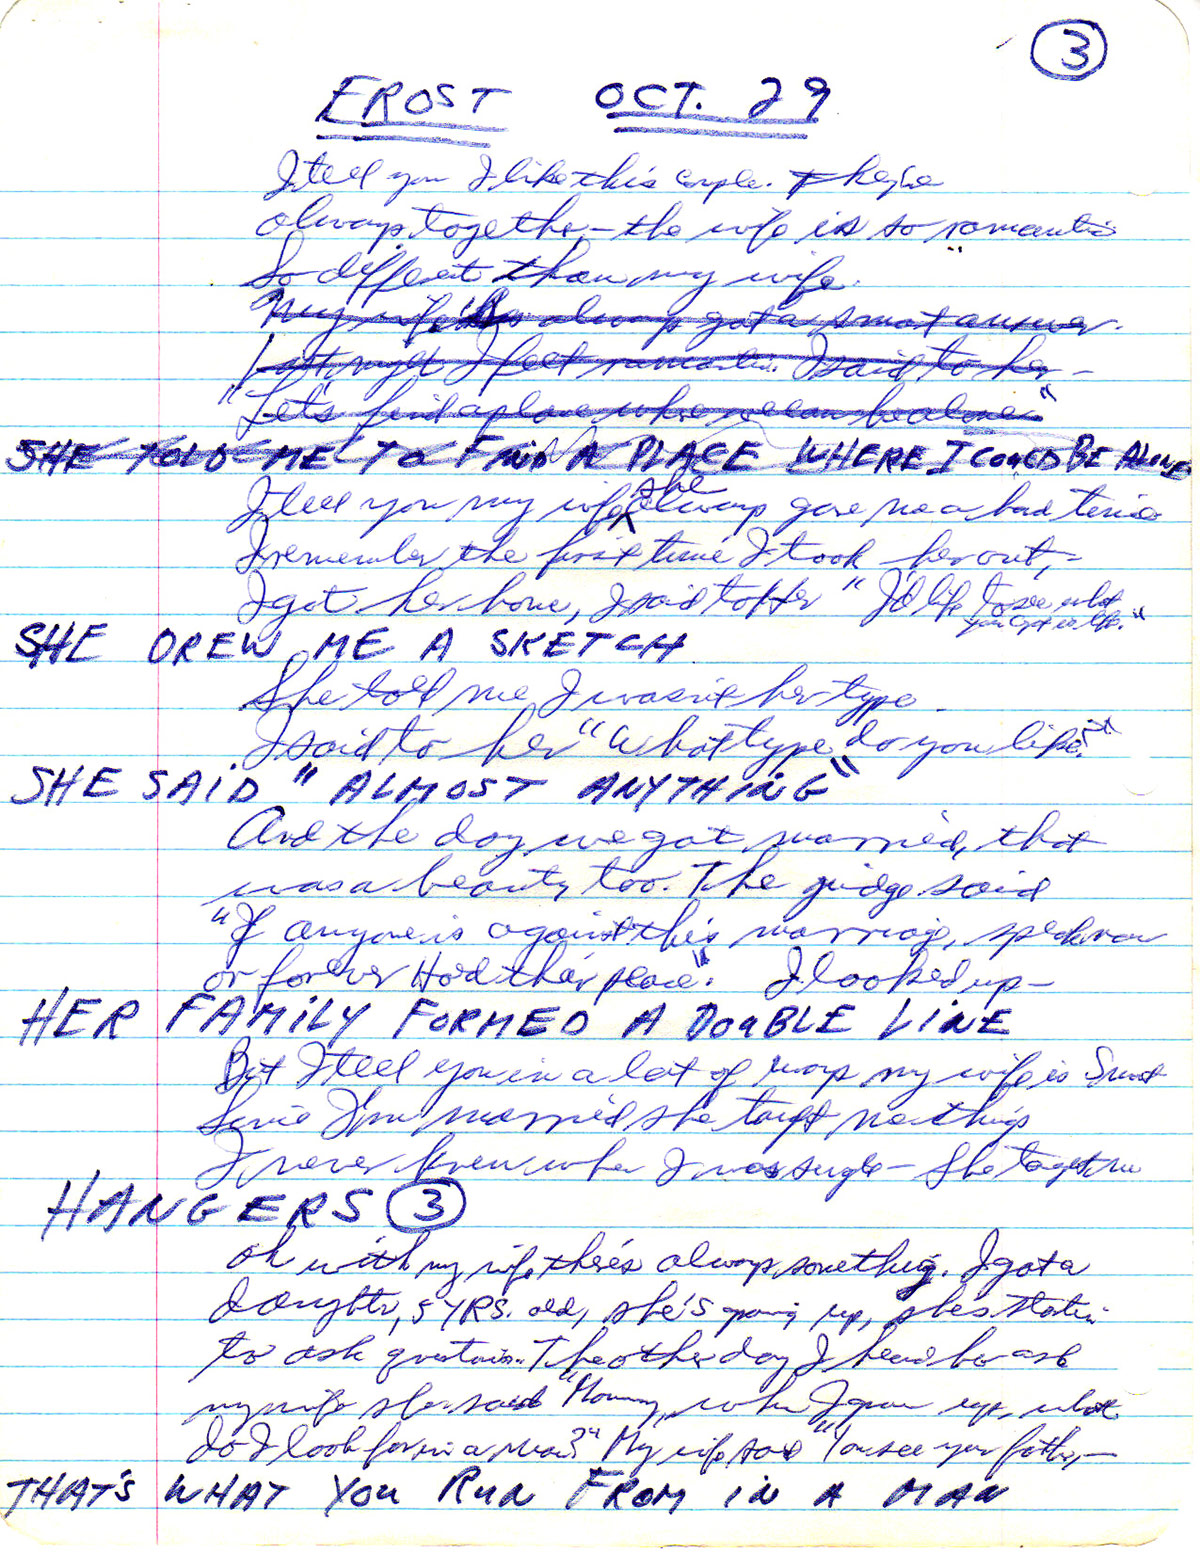 3
FROST OCT. 29
I tell you I like this couple. They're
always together - the wife is so romantic
So different than my wife.
My wife's always got a smart answer.
Last night I felt romantic. I said to her -
"Let's find a place where we can be alone"
SHE TOLD ME TO FIND A PLACE WHERE I COULD BE ALONE
I tell you my wife she always gave me a hard time
I remember the first time I took her out, -
I got her home, I said to her "I'd like to see what
you're like."
SHE DREW ME A SKETCH
She told me I wasn't her type
I said to her "What type do you like?"
SHE SAID "ALMOST ANYTHING"
And the day we got married, that
was a beauty too. The judge said
"If anyone is against this marriage, speak now
or forever Hold their peace." I looked up -
HER FAMILY FORMED A DOUBLE LINE
But I tell you in a lot of ways my wife is Smart
Since I'm married she taught me things
I never knew when I was single - She taught me
HANGERS 3
oh with my wife there's always something. I got a
daughter, 5 YRS. old, she's growing up, she's startin
to ask questions. The other day I heard her ask
my wife she said "Mommy, when I grow up, what
do I look for in a man?" My wife said "You see your father, -
THAT'S WHAT YOU RUN FROM IN A MAN